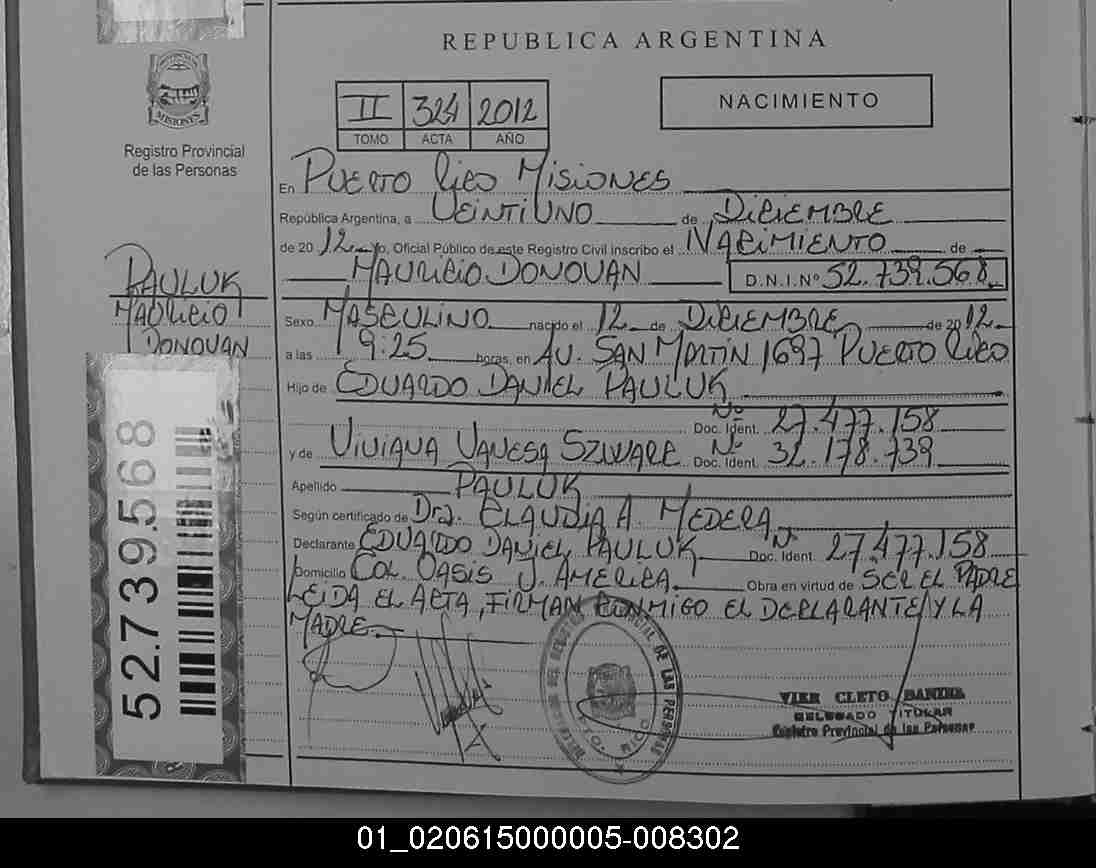 REPUBLICA ARGENTINA
MISIONES
Registro Provincial
de las Personas
II 324 2012
TOMO ACTA AÑO
NACIMIENTO
En PUERTO RICO MISIONES
República Argentina, a VEINTIUNO de DICIEMBRE
de 20 12 yo, Oficial Público de este Registro Civil inscribo el NACIMIENTO de
MAURICIO DONOVAN D.N.I.Nº 52.739.568
PAULUK
MAURICIO
DONOVAN
Sexo MASCULINO nacido el 12 de DICIEMBRE de 20 12
a las 19:25 horas, en AV. SAN MARTIN 1697 PUERTO RICO
Hijo de EDUARDO DANIEL PAULUK
Doc. Ident. Nº 27.477.158
y de VIVIANA VANESA SZWARC Doc. Ident. Nº 32.178.739
Apellido PAULUK
Según certificado de Dra. CLAUDIA A. MEDERA
Declarante EDUARDO DANIEL PAULUK Doc. Ident. Nº 27.477.158
Domicilio COL. OASIS J. AMERICA Obra en virtud de SER EL PADRE
LEIDA EL ACTA, FIRMAN CONMIGO EL DECLARANTE Y LA
MADRE
52.739.568
DELEGADO TITULAR
Registro Provincial de las Personas
01_020615000005-008302